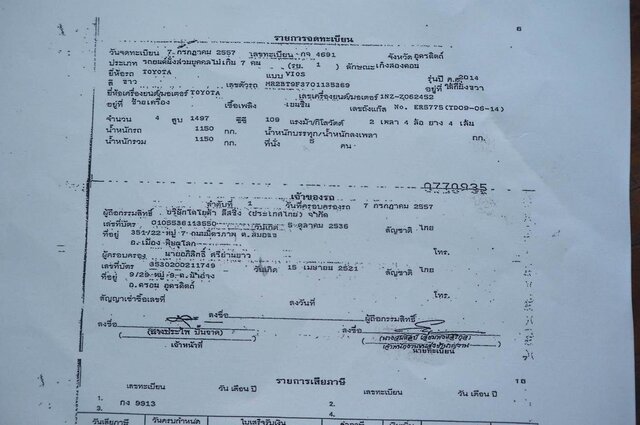 6
รายการจดทะเบียน
วันจดทะเบียน 7 กรกฎาคม 2557 เลขทะเบียน กจ 4691 จังหวัด อุตรดิตถ์
ประเภท รถยนต์นั่งส่วนบุคคลไม่เกิน 7 คน (รย. 1) ลักษณะ เก๋งสองตอน
ยี่ห้อรถ TOYOTA แบบ VIOS รุ่นปี ค.ศ. 2014
สี ขาว เลขตัวรถ อยู่ที่
ยี่ห้อเครื่องยนต์/มอเตอร์ TOYOTA เลขเครื่องยนต์/มอเตอร์ 1NZ-Z062452
อยู่ที่ ข้างเครื่อง เชื้อเพลิง เบนซิน เลขถังแก๊ส No. ER5775(TD09-06-14)
จำนวน 4 สูบ 1497 ซีซี 109 แรงม้า/กิโลวัตต์ 2 เพลา 4 ล้อ ยาง 4 เส้น
น้ำหนักรถ 1150 กก. น้ำหนักบรรทุก/น้ำหนักลงเพลา กก.
น้ำหนักรวม 1150 กก. ที่นั่ง 5 คน
0770935
เจ้าของรถ
ลำดับที่ 1 วันที่ครอบครองรถ 7 กรกฎาคม 2557
ผู้ถือกรรมสิทธิ์ บริษัทโตโยต้า ลีสซิ่ง (ประเทศไทย) จำกัด
เลขที่บัตร 0105536113550 วันเกิด 5 ตุลาคม 2536 สัญชาติ ไทย
ที่อยู่ 351/22 หมู่ 7 ถ.มิตรภาพ ต.สมอแข
อ.เมือง พิษณุโลก โทร.
ผู้ครอบครอง
เลขที่บัตร 3530200211749 วันเกิด 15 เมษายน 2521 สัญชาติ ไทย
ที่อยู่ 9/29 หมู่ 9 ต.น้ำอ่าง
อ.ตรอน อุตรดิตถ์ โทร.
สัญญาเช่าซื้อเลขที่ ลงวันที่
ลงชื่อ ผู้ถือกรรมสิทธิ์
ลงชื่อ ลงชื่อ
เจ้าหน้าที่ นายทะเบียน
รายการเสียภาษี 16
เลขทะเบียน วัน เดือน ปี เลขทะเบียน วัน เดือน ปี
1. 2.
3. กง 9913 4.
วันเสียภาษี วันครบกำหนด ใบเสร็จรับเงิน